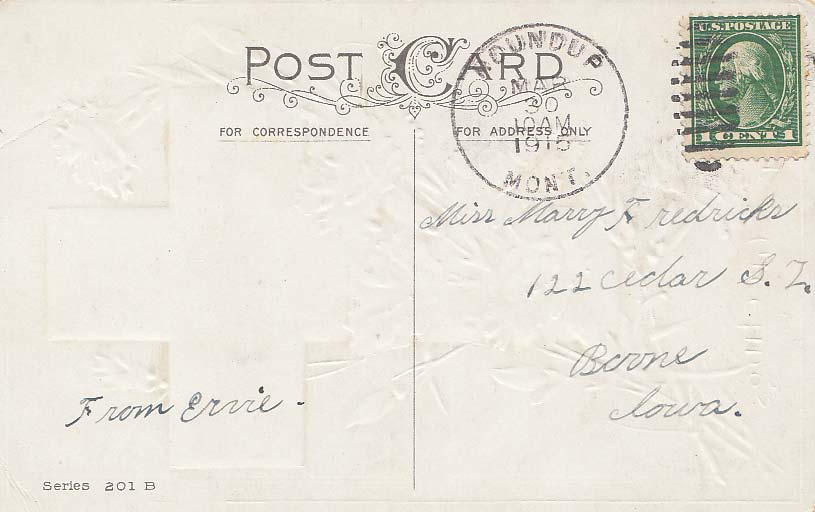 POST CARD
FOR CORRESPONDENCE
FOR ADDRESS ONLY
ROUNDUP
MAR
30
10 AM
1915
MONT.
U.S. POSTAGE
1 CENTS 1
Miss Marry Fredricks
122 Cedar S.T.
Boone
Iowa.
From Ervie -
Series 201 B